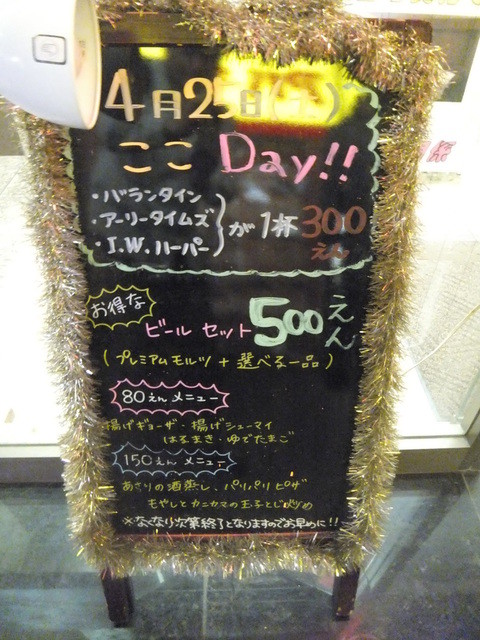 4月25日(土)
ここ Day!!
・バランタイン
・アーリータイムズ
・I.W.ハーパー
が1杯300えん
お得な
ビール セット 500えん
(プレミアムモルツ + 選べる一品)
80えん メニュー
揚げギョーザ・揚げシューマイ
はるまき・ゆでたまご
150えん メニュー
あさりの酒蒸し、パリパリピザ
もやしとカニカマの玉子とじ炒め
※なくなり次第終了となりますのでお早めに!!